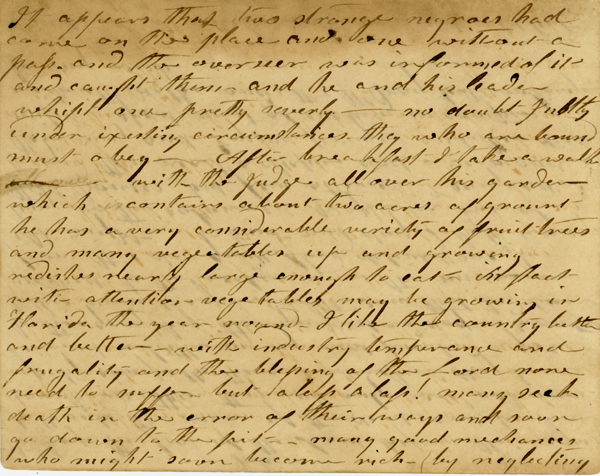 It appears that two strange negroes had
come on the place and one without a
pass. and the overseer was informed of it
and caught them - and he and his leader
whipt one pretty severly - no doubt justly
under existing circumstances they who are bound
must obey - After breakfast I take a walk
with the Judge all over his garden
which contains about two acres of ground
he has a very considerable variety of fruit trees
and many vegetables up and growing
redishes nearly large enough to eat - In fact
with attention vegetables may be growing in
Florida the year round - I like the country better
and better - with industry temperance and
frugality and the blessing of the Lord none
need to suffer but alass alass! many seek
death in the error of their ways and soon
go down to the pit - many good mechanics
who might soon become rich - (by neglecting